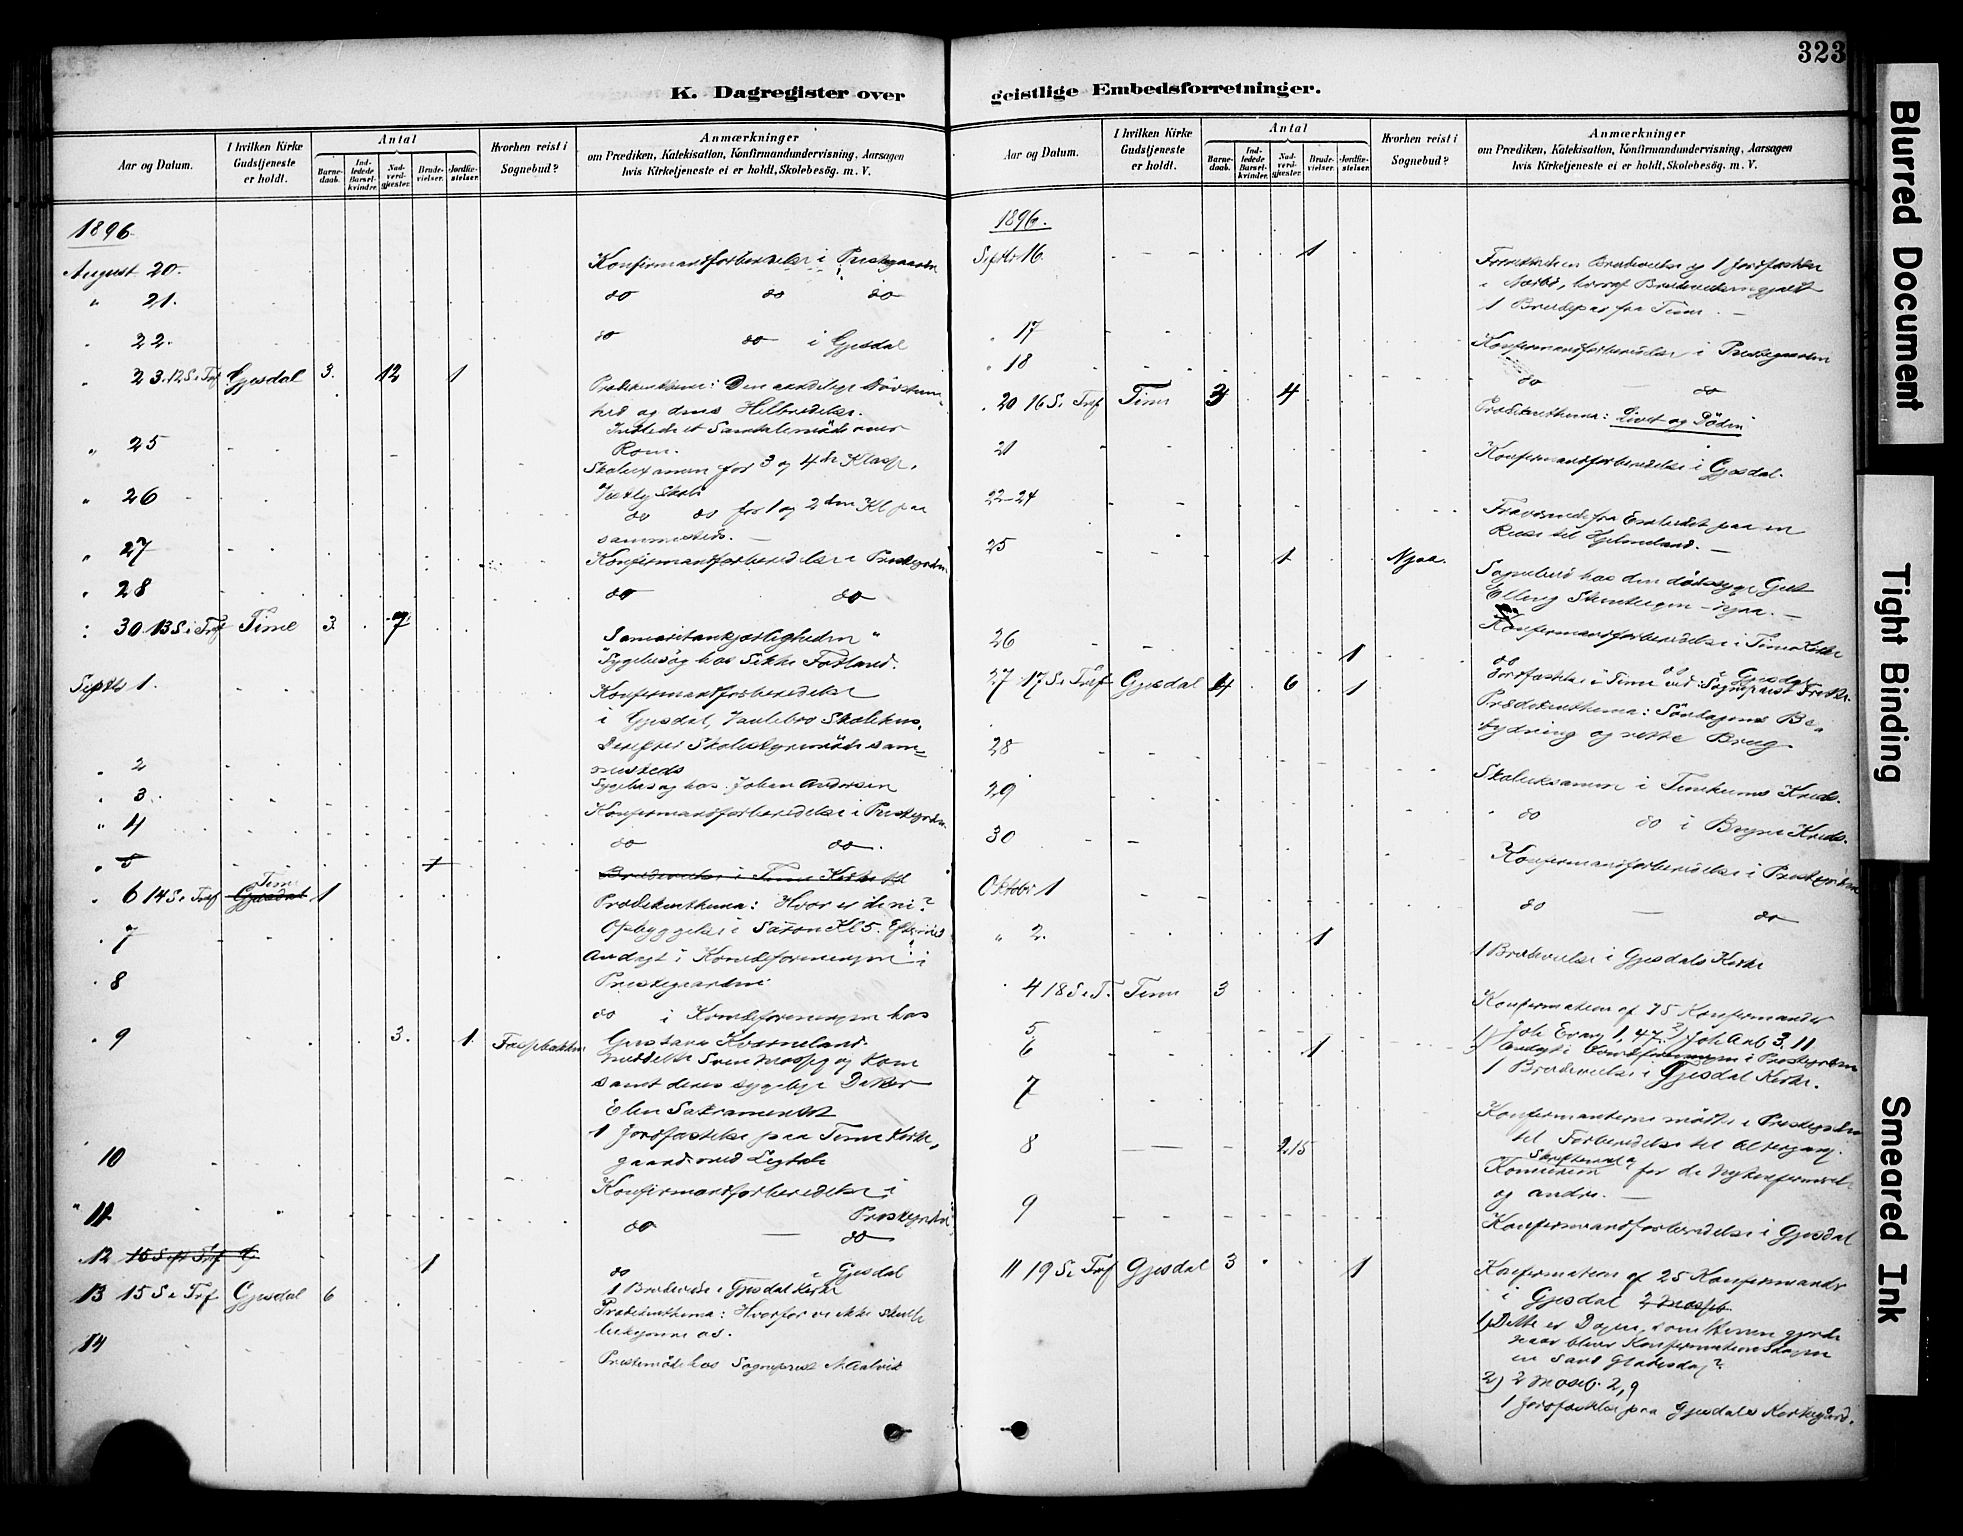 323
K. Dagregister over geistlige Embedsforretninger.
Aar og Datum.
I hvilken Kirke Gudstjeneste er holdt.
Antal
Barnedaab.
Indledede Barselkvinder.
Nadverdgjester.
Brudevielser.
Jordfæstelser.
Hvorhen reist i Sognebud?
Anmærkninger
om Prædiken, Katekisation, Konfirmandundervisning, Aarsagen
hvis Kirketjeneste ei er holdt, Skolebesög. m. V.
1896
August 20. Konfirmandforberedelse i Præstegaarden
" 21. do do do
" 22. do do i Gjesdal
" 23. 12 S. e. Tref Gjesdal 3. 12 1 Prædikenthema: Den aandelige Døvstum-
hed og dens Helbredelse.
Indledet Samtalemöde over
Rom.
" 25 Skolexamen for 3 og 4de Klasse,
" 26 do do for 1 og 2den Kl paa
sammesteds. —
" 27 Konfirmandforberedelse i Præstegrden
" 28 do do
" 30. 13 S. e. Tref Time 3. 7 Samaritankjærligheden "
Sygebesög hos Sikke Fotland.
Septbr 1. Konfirmandforberedelse
i Gjesdal, Skolehus.
Derefter Skolestyremöde sam-
mesteds
" 2 Sygebesög hos Johan Andersen
" 3. Konfirmandforberedelse i Præstegrden
" 4 do do.
" 5 1 Brudevielse i Time Kirke
" 6 14 S. e. Tref Time Gjesdal 1 Prædikenthema: Hvor er de ni?
Opbyggelse i Saron Kl 5. Efterm
" 7 Andagt i Kvindeforeningen i
" 8 Præstegaarden
do i Kvindeforeningen hos
" 9 3. 1 Gustava Kværneland.
Sven og Kone
samt deres sygelige Datter
Elen Sakramentet
1 Jordfæstelse paa Time Kirke-
" 10 gaard med Ligtale
Konfirmandforberedelse i
" 11 do Præstegrden
do
" 12 15 S. e. Tref 1 do i Gjesdal
1 Brudevielse i Gjesdal Kirke
13 15 S. e. Tref Gjesdal 6 Prædikenthema: Hvorfor vi ikke skulle
bekymre os.
" 14 Præstemöde hos Sogneprest Aalvik
Aar og Datum.
I hvilken Kirke Gudstjeneste er holdt.
Antal
Barnedaab.
Indledede Barselkvinder.
Nadverdgjester.
Brudevielser.
Jordfæstelser.
Hvorhen reist i Sognebud?
Anmærkninger
om Prædiken, Katekisation, Konfirmandundervisning, Aarsagen
hvis Kirketjeneste ei er holdt, Skolebesög. m. V.
1896.
Septbr 16. 1 Forrettet en Brudevielse og 1 Jordfæstelse
i Nærbö, hvoraf Brudevielsen gjaldt
1 Brudepar fra Time. —
" 17 Konfirmandforberedelse i Præstegaarden
" 18 do — do
" 20 16 S. e. Tref Time 3 4 Prædikenthema: Livet og Döden
21 Konfirmandforberedelse i Gjesdal.
22-24 Fraværende fra Embedet paa en
Reise til Hjelmeland. —
25 1 Njaa. Sognebud hos den dödssyge Gut
Elling Njaa. —
26 Konfirmandforberedelse i Time Kirke
1 do do i Gjesdal
27 17 S. e. Tref Gjesdal 4 6 1 Jordfæstelse i Time ved Sogneprest
Prædikenthema: Söndagens Be-
tydning og rette Brug.
28 Skoleeksamen i Kreds.
29 do do i Bryne Kreds.
30 Konfirmandforberedelse i Præstegrden
Oktober 1 do — do
" 2. 1 1 Brudevielse i Gjesdals Kirke
4 18 S. e. T. Time 3 Konfirmation af 75 Konfirmander
1) Joh Evang 1,47. 2) Joh Aab 3.11
5 Andagt i Kvindeforeningen i Præstegrden
6 1 1 Brudevielse i Gjesdal Kirke.
7 Konfirmanterne mötte i Præstegrden
til Forberedelse til Altergang.
8 — 215 Skriftemaal og
Komunion for de nykonfirmerede
og andre. —
9 Konfirmandforberedelse i Gjesdal
11 19 S. e. Tref Gjesdal 3 1 Konfirmation af 25 Konfirmander
i Gjesdal 2 Moseb
1) Dette er Dagen, som Herren gjorde
naar bliver Konfirmationsdagen
en sand Glædesdag?
2) 2 Moseb. 2,9
1 Jordfæstelse paa Gjesdals Kirkegaard.
Blurred Document
Tight Binding
Smeared Ink